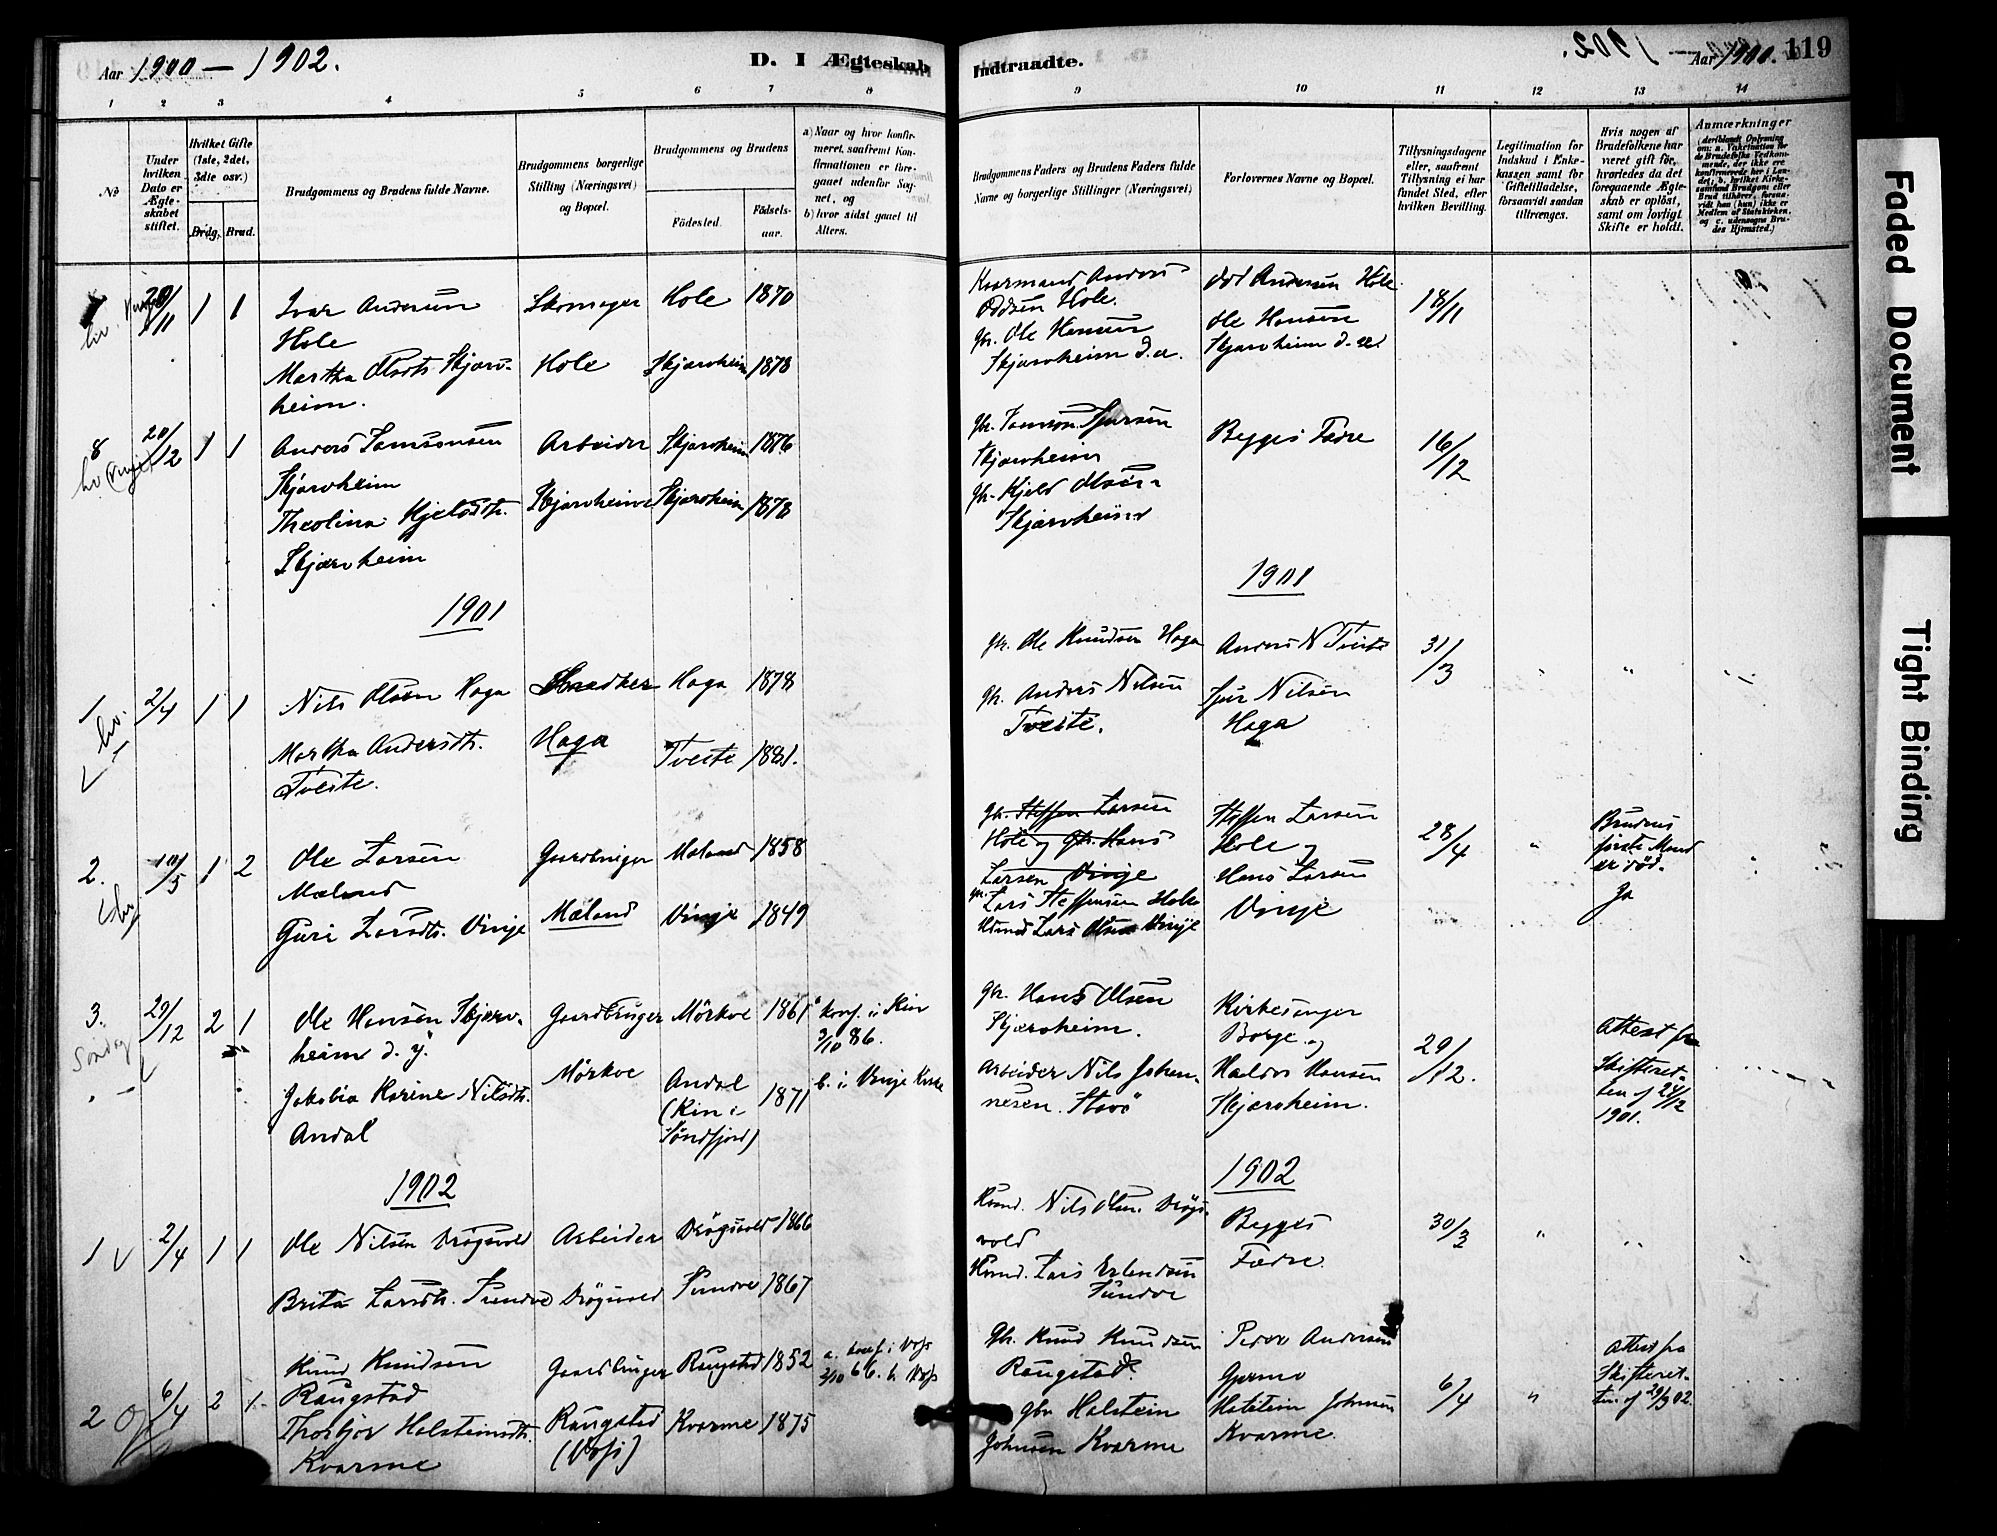 Aar 1900 — 1902.
D. I Ægteskab
Indtraadte.
1902.
Aar 1900.
119
1 2 3 4 5 6 7 8
9 10 11 12 13 14
No
Under hvilken Dato er Ægteskabet stiftet.
Hvilket Gifte (1ste, 2det, 3die osv.)
Brdg. Brud.
Brudgommens og Brudens fulde Navne.
Brudgommens borgerlige Stilling (Næringsvei) og Bopæl.
Brudgommens og Brudens
Fødested.
Fødselsaar.
a) Naar og hvor konfirmeret, saafremt Konfirmationen er foregaaet udenfor Sognet, og
b) hvor sidst gaaet til Alters.
Brudgommens Faders og Brudens Faders fulde Navne og borgerlige Stillinger (Næringsvei)
Forlovernes Navne og Bopæl.
Tillysningsdagene eller, saafremt Tillysning ei har fundet Sted, efter hvilken Bevilling.
Legitimation for Indskud i Enkekassen samt for Giftetilladelse, forsaavidt saadan tiltrænges.
Hvis nogen af Brudefolkene har været gift før, hvorledes da det foregaaende Ægteskab er opløst, samt om lovligt Skifte er holdt.
Anmærkninger
Ivar Andersen
Hole
Martha Olsdtr. Skjervheim.
Skomager
Hole
Hole 1870
Skjervheim 1878
Kaarmand Anders
Oddsen Hole.
Gbr. Ole Hansen
Skjervheim d. æ.
Odd Andersen Hole
Ole Hansen
Skjervheim d. æ.
18/11
8 20/12 1 1
Anders Samsonsen
Skjervheim
Theolina Kjeldsdtr.
Skjervheim
Arbeider
Skjervheim
Skjervheim 1876
Skjervheim 1878
Skjervheim
Gbr. Kjeld Olsen
Skjervheim
Begges Fædre
16/12
1901
1901
1 2/4 1 1
Nils Olsen Haga
Martha Andersdtr.
Tveite.
Haga
Haga 1878
Tveite 1881.
Gbr. Ole Knudsen Haga
Gbr. Anders Nilsen
Tveite.
Anders N Tveite
Sjur Nilsen
Haga
31/3
2. 10/5 1 2
Ole Larsen
Mæland
Guri Larsdtr. Vinje
Gaardbruger
Mæland
Mæland 1858
Vinje 1849
Gbr. Steffen Larsen
Hole og Gbr. Hans
Larsen Vinje
Gbr. Lars Steffensen Hole
Lars Olsen Vinje
Steffen Larsen
Hole og
Hans Larsen
Vinje
28/4
Brudens
første Mand
er død.
Ja
3. 29/12 2 1
Søndag
Ole Hansen Skjervheim d. y.
Jakobia Karine Nilsdtr.
Andal
Gaardbruger
Mørkve
Mørkve 1861
Andal
(Kin i
Søndfjord) 1871
a konf. i Kin
3/10 86.
b. i Vinje Kirke
Gbr. Hans Olsen
Skjervheim.
Arbeider Nils Johannesen
Kirkesanger
Borge og
Haldor Hansen
Skjervheim.
29/12.
Attest fra
Skifteretten af 24/12
1901.
1902
1902
1 2/4 1 1
Ole Nilsen Drøgsvold
Brita Larsdtr. Sundve
Arbeider
Drøgsvold
Drøgsvold 1866
Sundve 1867
Nils Olsen Drøgsvold
Lars Erlendsen
Sundve
Begges
Fædre.
30/3
2 6/4 2 1
Knud Knudsen
Raugstad
Thorbjør Holsteinsdtr.
Kvarme
Gaardbruger
Raugstad
(Voss)
Raugstad 1852
Kvarme 1875
a. konf. i Voss
2/10 66. b. Voss
Gbr. Knud Knudsen
Raugstad.
Gbr Holstein
Johnsen Kvarme
Peder Andersen
Gjerme
Holstein Johnsen
Kvarme.
6/4
Attest fra
Skifteretten af 29/3 02.
Faded Document
Tight Binding